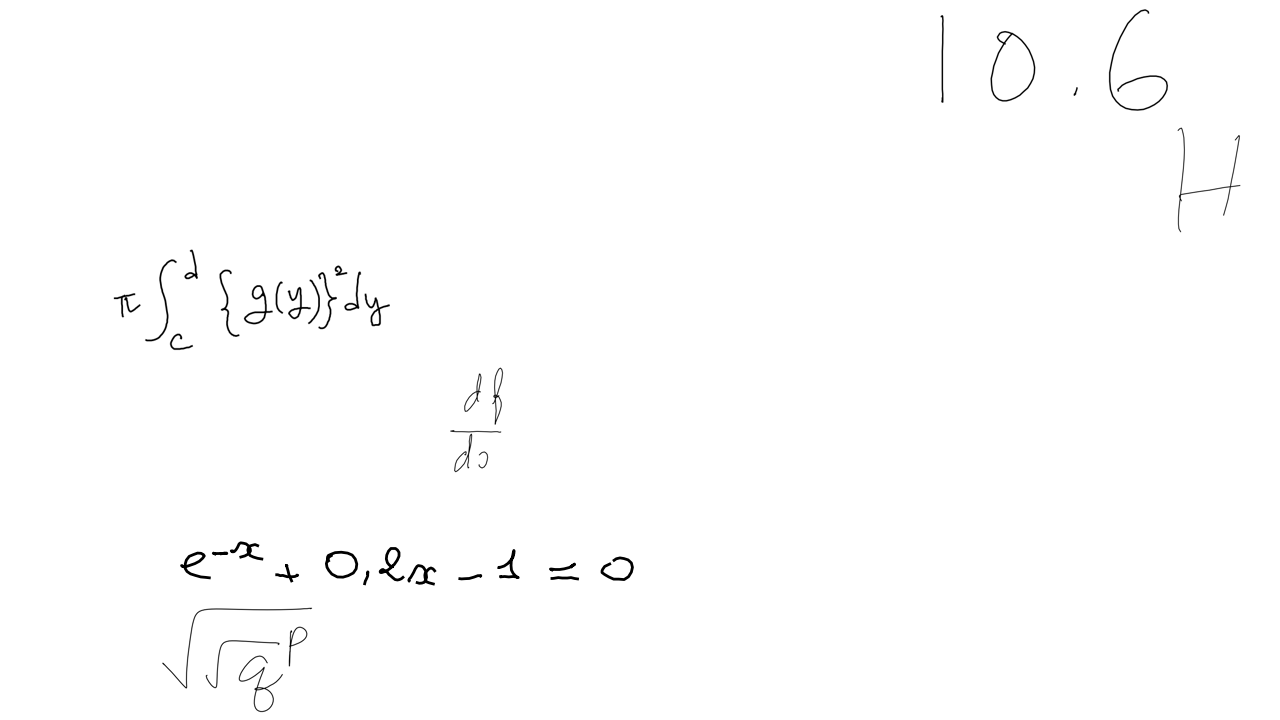 10.6
H
π∫_c^d {g(y)}²dy
df/ds
e^{-x} + 0,2x - 1 = 0
√(√q^p)